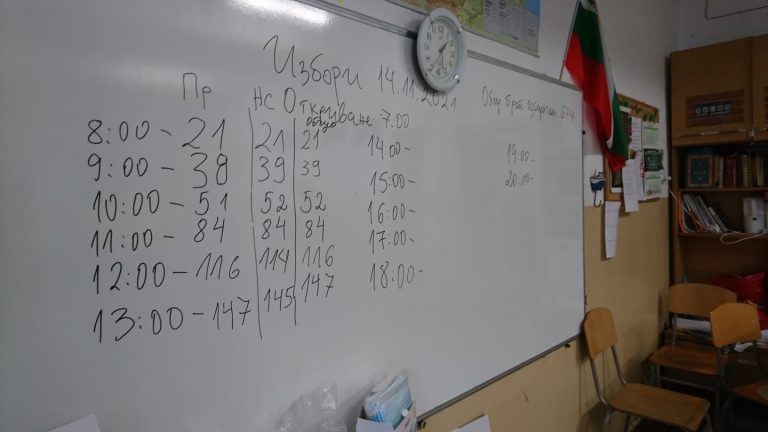 Избори 14.11.2021
Откриване: 7:00
Общ брой избиратели 674
Пр НС общо
8:00 - 21 21 21
9:00 - 38 39 39
10:00 - 51 52 52
11:00 - 84 84 84
12:00 - 116 114 116
13:00 - 147 145 147
14:00 -
15:00 -
16:00 -
17:00 -
18:00 -
19:00 -
20:00 -